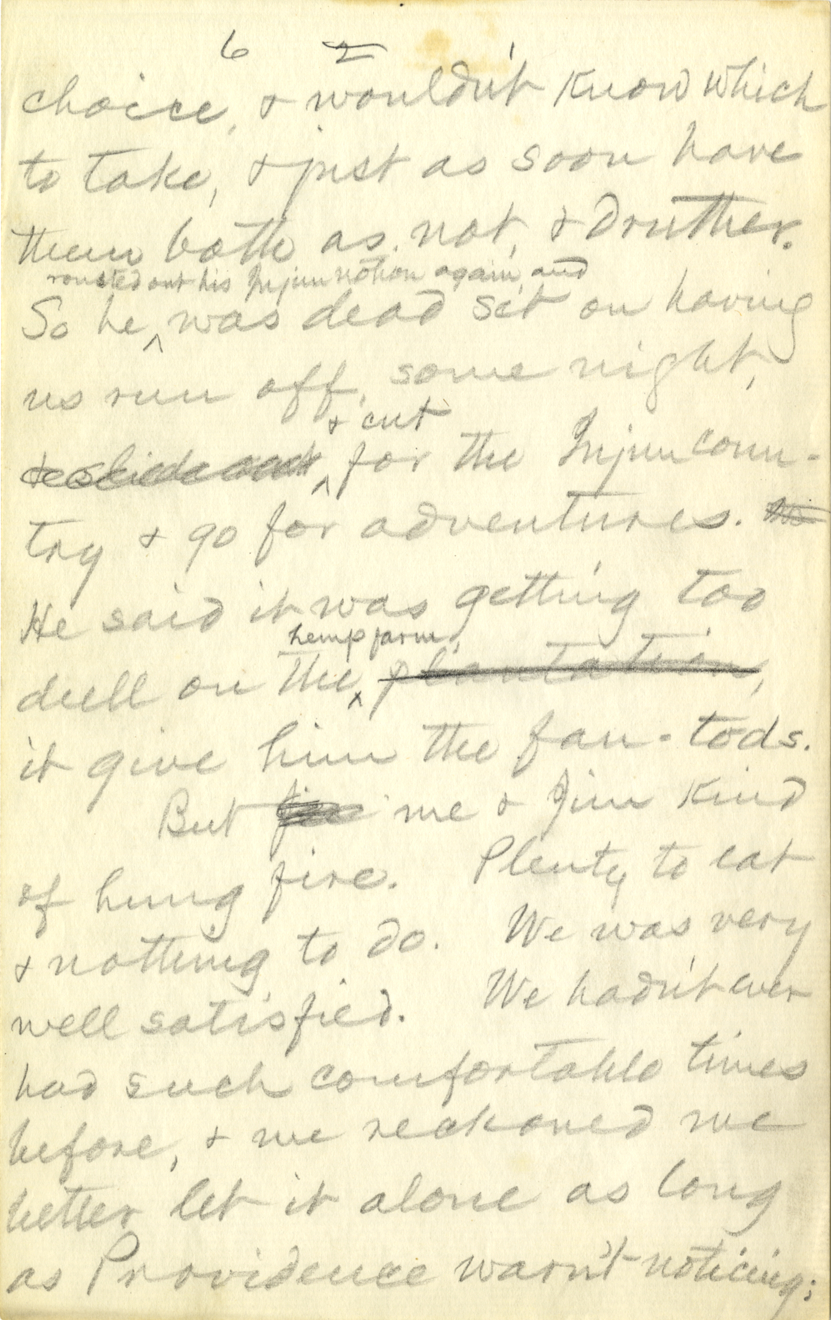 6 2
choice, & wouldn't know which
to take, & just as soon have
them both as not, & druther.
rousted out his Injun notion again, and
So he ^ was dead set on having
us run off, some night,
& cut
& slide out ^ for the Injun coun-
try & go for adventures.
He said it was getting too
hemp farm,
dull on the ^ plantation,
it give him the fan-tods.
But me & Jim kind
of hung fire. Plenty to eat
& nothing to do. We was very
well satisfied. We hadn't ever
had such comfortable times
before, & we reckoned we
better let it alone as long
as Providence warn't noticing;